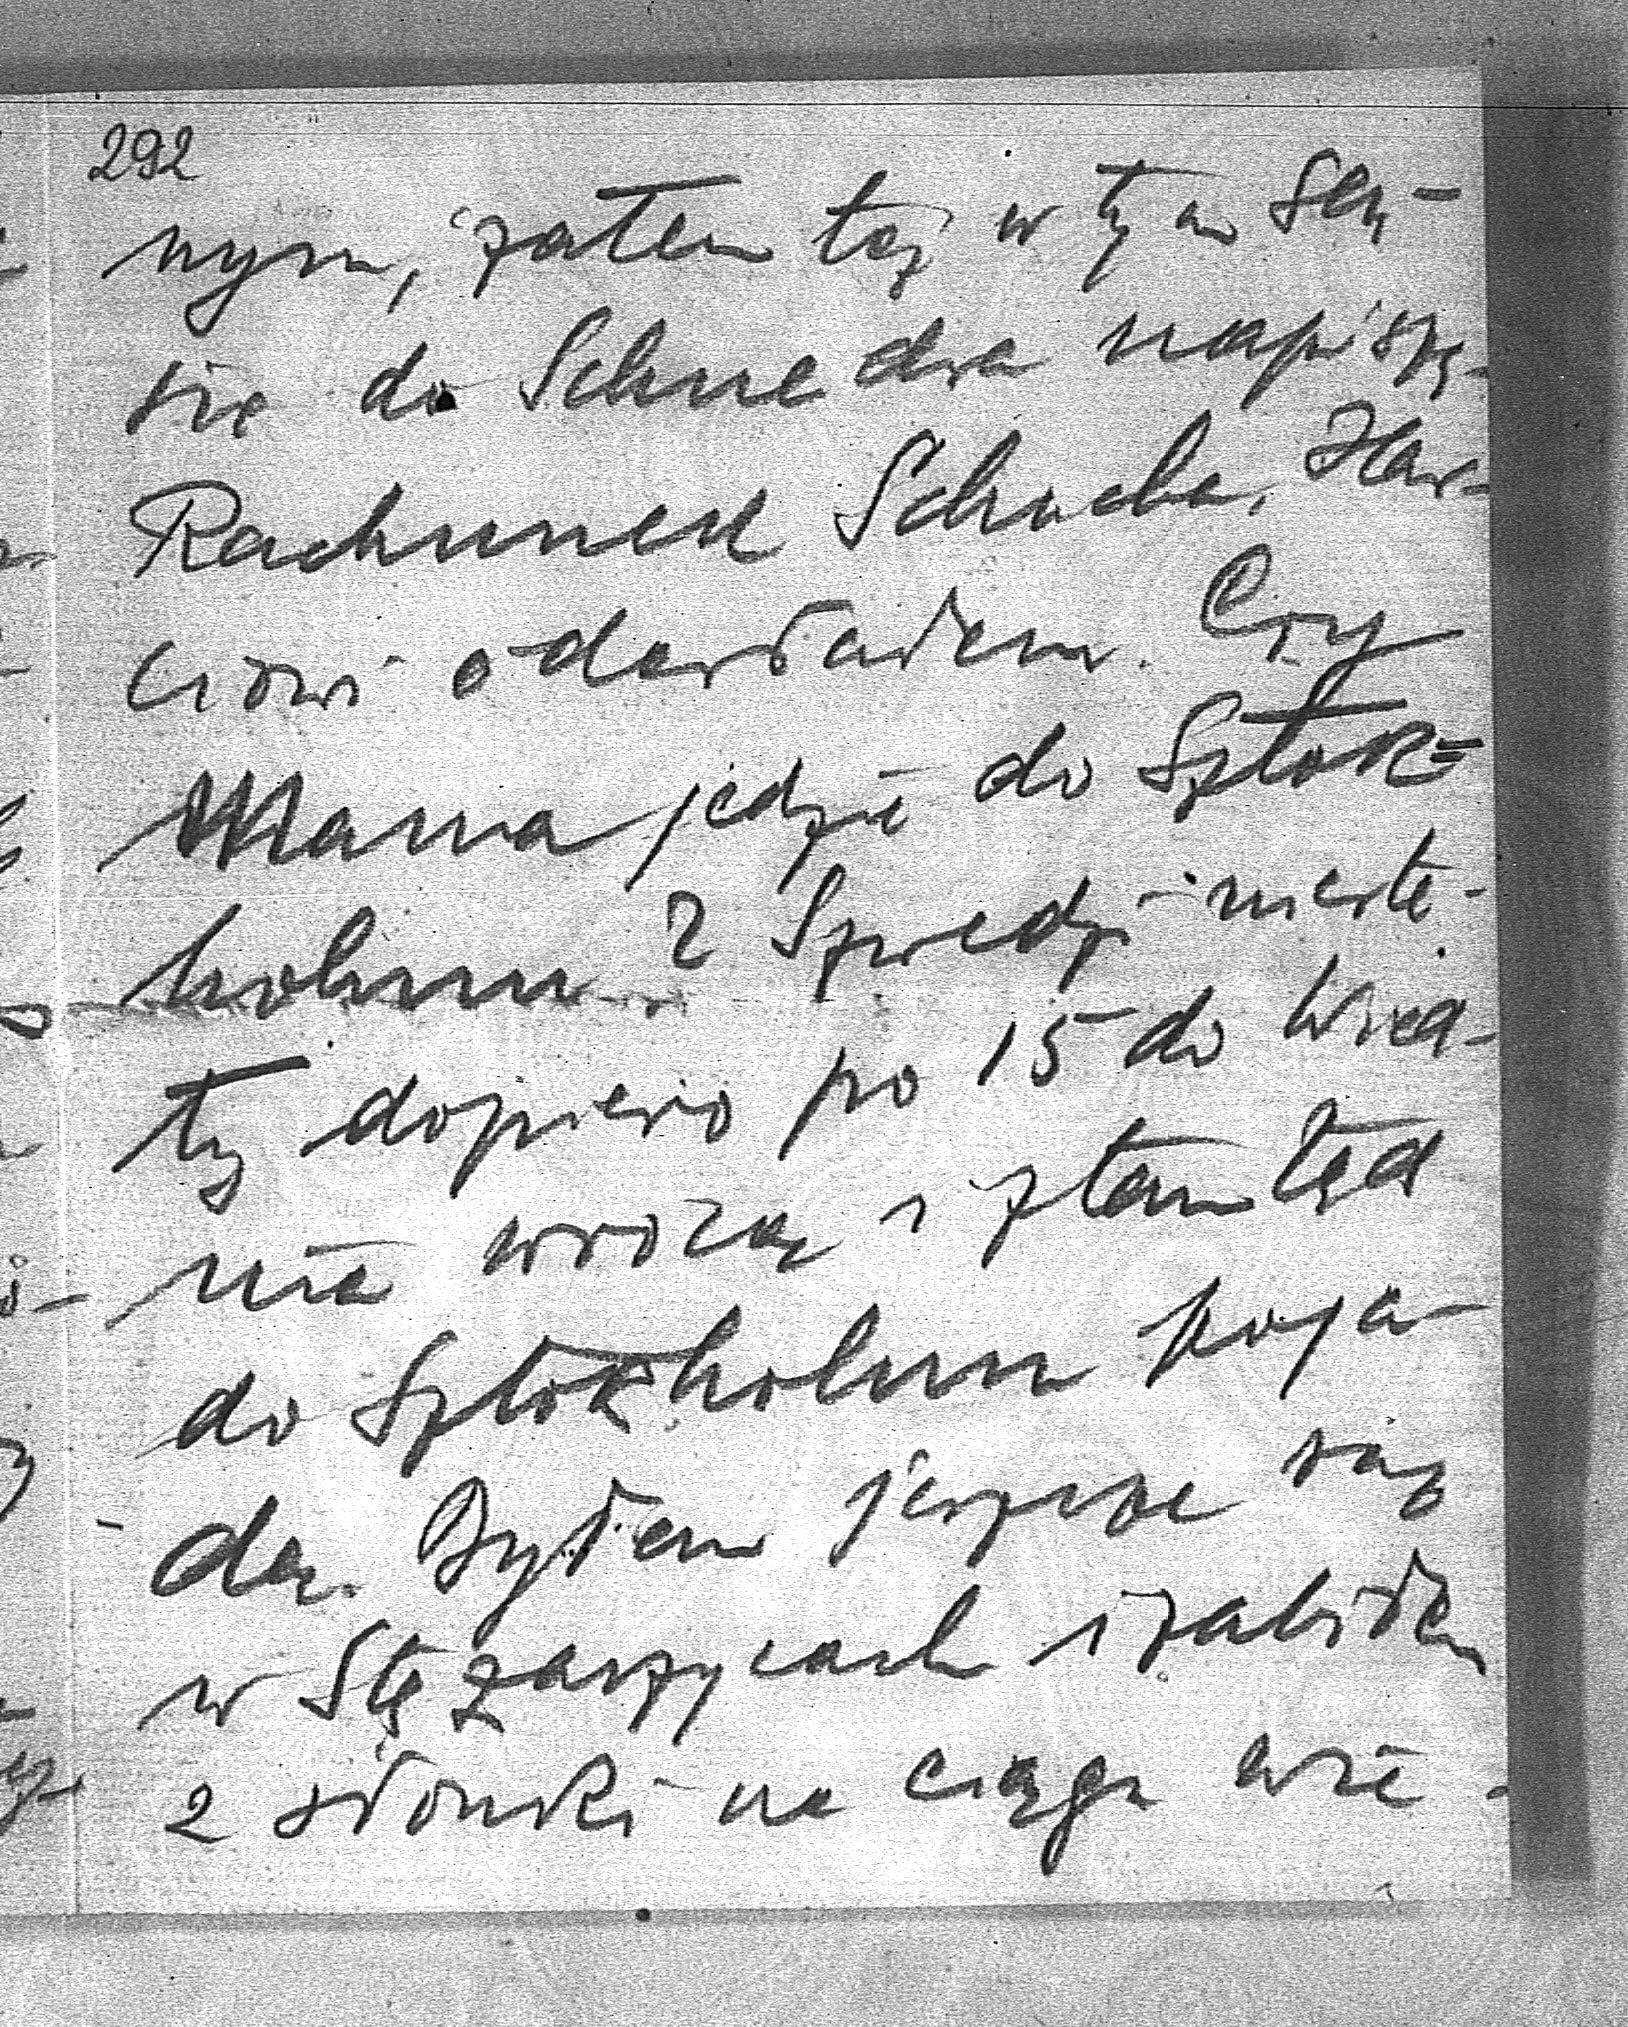 292
nym, zatem też w tym sen-
sie do Schnedra napiszę.
Rachunek Schucha, Har-
ciowi odesłałem. Czy
Mama jedzie do Sztok-
holmu? Szwedzi nieste-
ty dopiero po 15 do Wied-
nia wrócą i ztamtąd
do Sztokholmu poja-
dą. Byłem jeszcze raz
w Stężarzycach i zabiłem
2 słonki na ciągu wie-